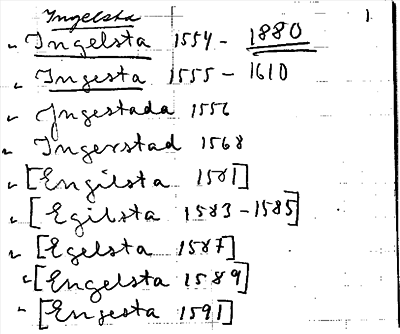 Ingelsta 1.
" Ingelsta 1554 - 1880
" Ingesta 1555 - 1610
" Jngestada 1556
" Ingerstad 1568
" [Engilsta 1581]
" [Egilsta 1583 - 1585]
" [Egelsta 1587]
" [Engelsta 1589]
" [Engesta 1591]